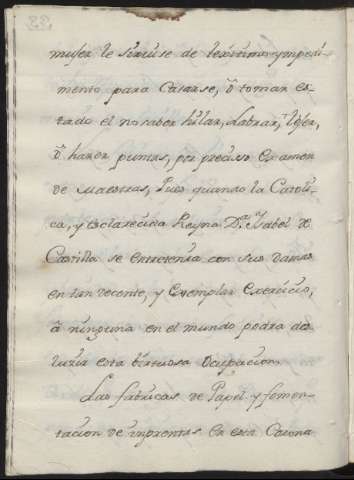 muger le sirviese de lexitimo ympedi-
mento para Casarse, ò tomar es-
tado el no saber hilar, Labrar, texer,
ò hazer puntas, por preciso examen
de Maestras, Pues quando la Catoli-
ca, y esclarecida Reyna Dª. Ysabel de
Castilla se entretenia con sus Damas
en tan decente, y exemplar exercicio,
à ninguna en el mundo podrà des-
luzir esta birtuosa Ocupacion.
Las fabricas de Papel y fomen-
tacion de ymprentas en esta Corona